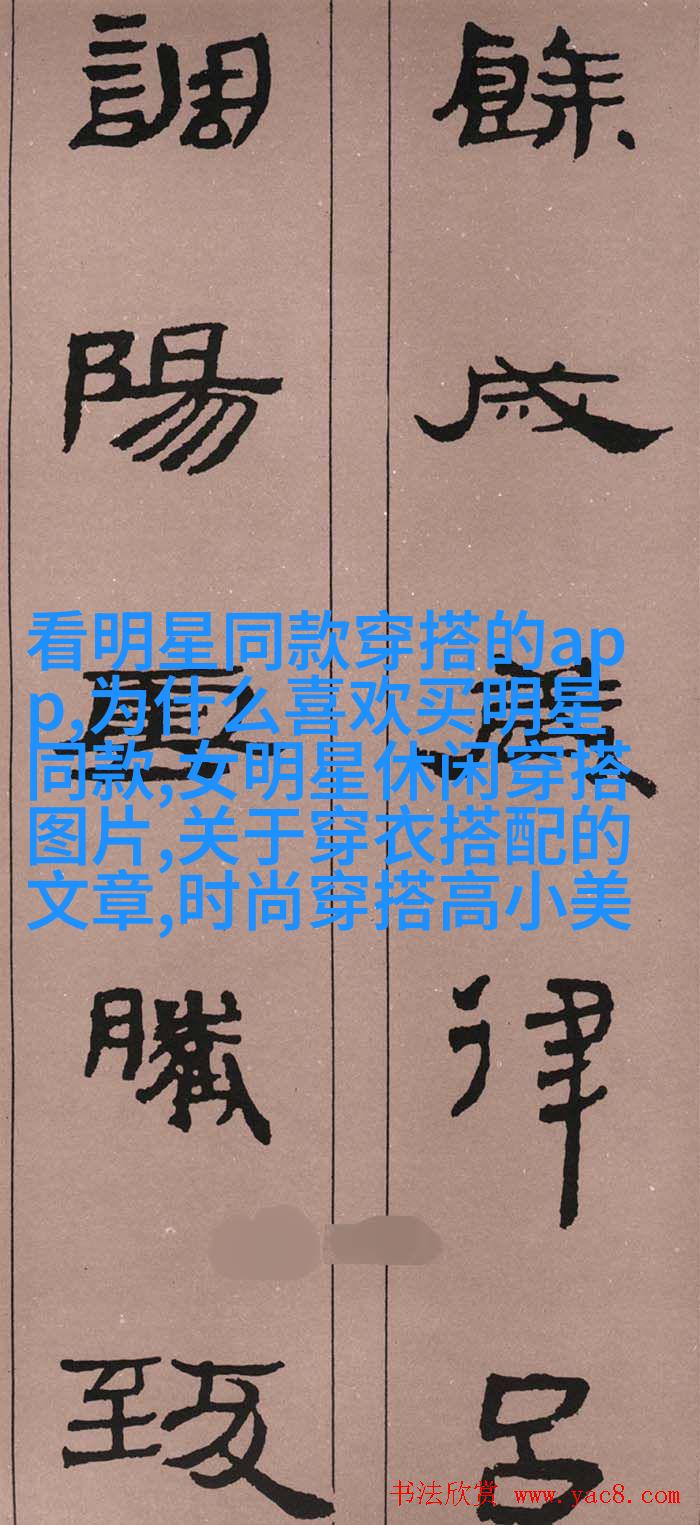 餘成歲律呂
調陽雲騰致
看明星同款穿搭的ap
p,为什么喜欢买明星
同款,女明星休闲穿搭
图片,关于穿衣搭配的
文章,时尚穿搭高小美
书法欣赏 www.yac8.com